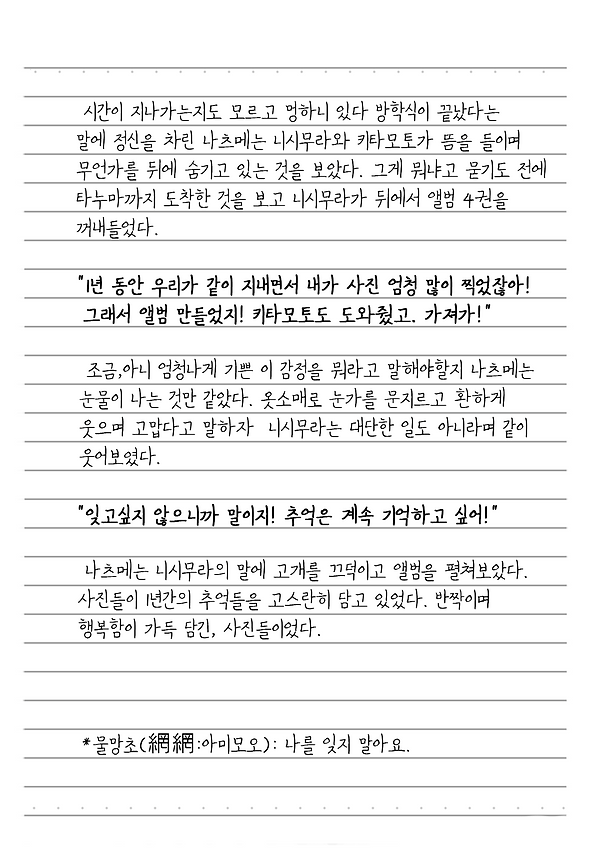 시간이 지나가는지도 모르고 멍하니 있다 방학식이 끝났다는
말에 정신을 차린 나츠메는 니시무라와 키타모토가 뜸을 들이며
무언가를 뒤에 숨기고 있는 것을 보았다. 그게 뭐냐고 묻기도 전에
타누마까지 도착한 것을 보고 니시무라가 뒤에서 앨범 4권을
꺼내들었다.
"1년 동안 우리가 같이 지내면서 내가 사진 엄청 많이 찍었잖아!
그래서 앨범 만들었지! 키타모토도 도와줬고. 가져가!"
조금,아니 엄청나게 기쁜 이 감정을 뭐라고 말해야할지 나츠메는
눈물이 나는 것만 같았다. 옷소매로 눈가를 문지르고 환하게
웃으며 고맙다고 말하자 니시무라는 대단한 일도 아니라며 같이
웃어보였다.
"잊고싶지 않으니까 말이지! 추억은 계속 기억하고 싶어!"
나츠메는 니시무라의 말에 고개를 끄덕이고 앨범을 펼쳐보았다.
사진들이 1년간의 추억들을 고스란히 담고 있었다. 반짝이며
행복함이 가득 담긴, 사진들이었다.
*물망초(網網:아미모오): 나를 잊지 말아요.